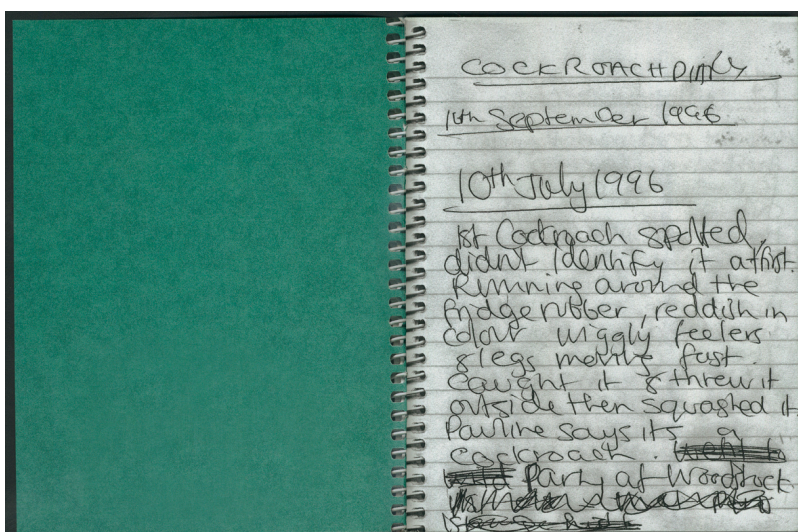 COCKROACH DIARY
10th September 1996
10th July 1996
1st Cockroach spotted,
didnt identify it at first.
Running around the
fridge rubber, reddish in
colour wiggly feelers
& legs moving fast.
Caught it & threw it
outside then squashed it
Pauline says its a
cockroach.
Party at Woodstock